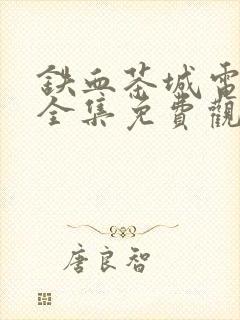 鉄血茶城電
全集免費觀
唐良智